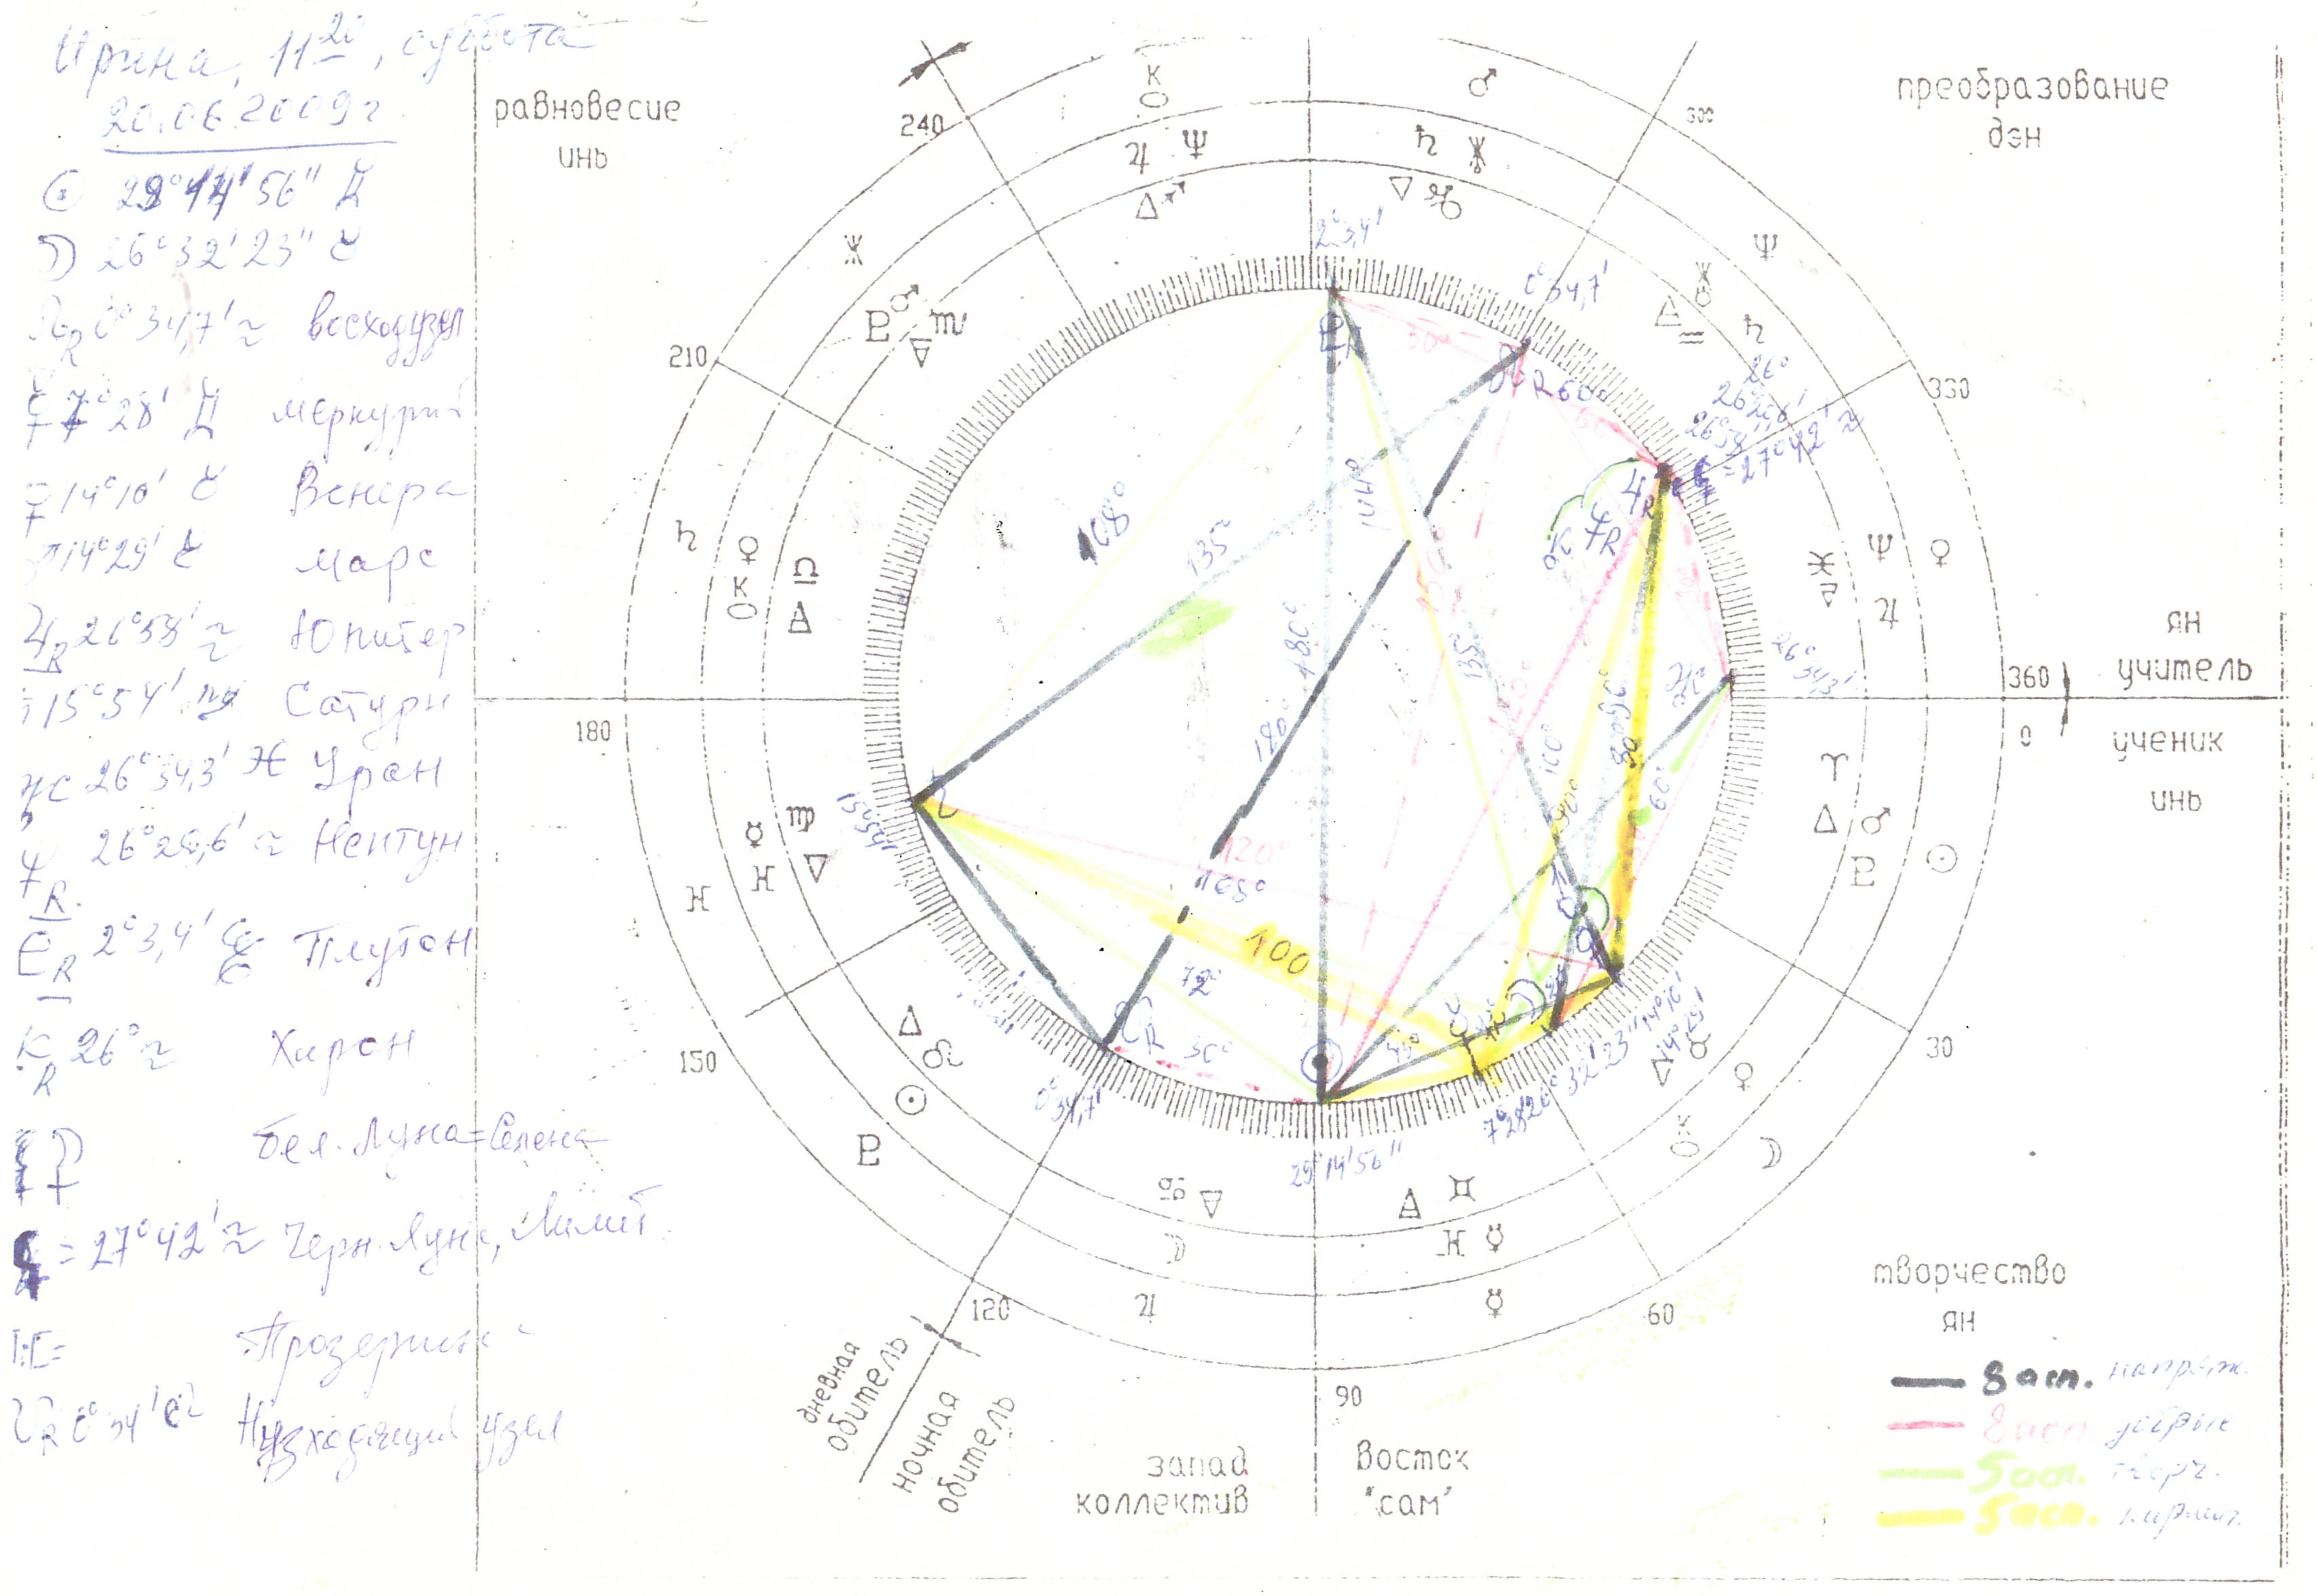 Ирина, 11 20, суббота
20.06.2009г
☉ 29°14'56" ♊
☽ 26°32'23" ♉
☊R 0°34,7' ♒ восход узел
☿ 7°28' ♊ Меркурий
♀ 14°10' ♉ Венера
♂ 14°29' ♉ Марс
♃R 26°58' ♒ Юпитер
♄ 15°54' ♍ Сатурн
26°34,3' ♓ Уран
♆R 26°28,6' ♒ Нептун
♇R 2°3,4' ♑ Плутон
KR 26° ♒ Хирон
бел. Луна = Селена
= 27°42' ♒ Черн. Луна, Лилит
Прозерпина
☋R 0°34' ♌ Нисходящий узел
равновесие
инь
преобразование
дэн
ян
учитель
ученик
инь
творчество
ян
8 асп. напряж.
8 асп.
5 асп. творч.
5 асп.
запад
коллектив
восток
"сам"
дневная
обитель
ночная
обитель
240
300
210
330
180
360
0
150
30
120
60
90
2°3,4'
0°34,7'
26°
27°42' ♒
26°34,3'
15°54'
0°34,7'
29°14'56"
7°28'
26°32'23"
14°10'
14°29'
168°
135°
144°
180°
180°
135°
120°
100°
90°
60°
120°
165°
100
72°
30°
45°
30°
60°